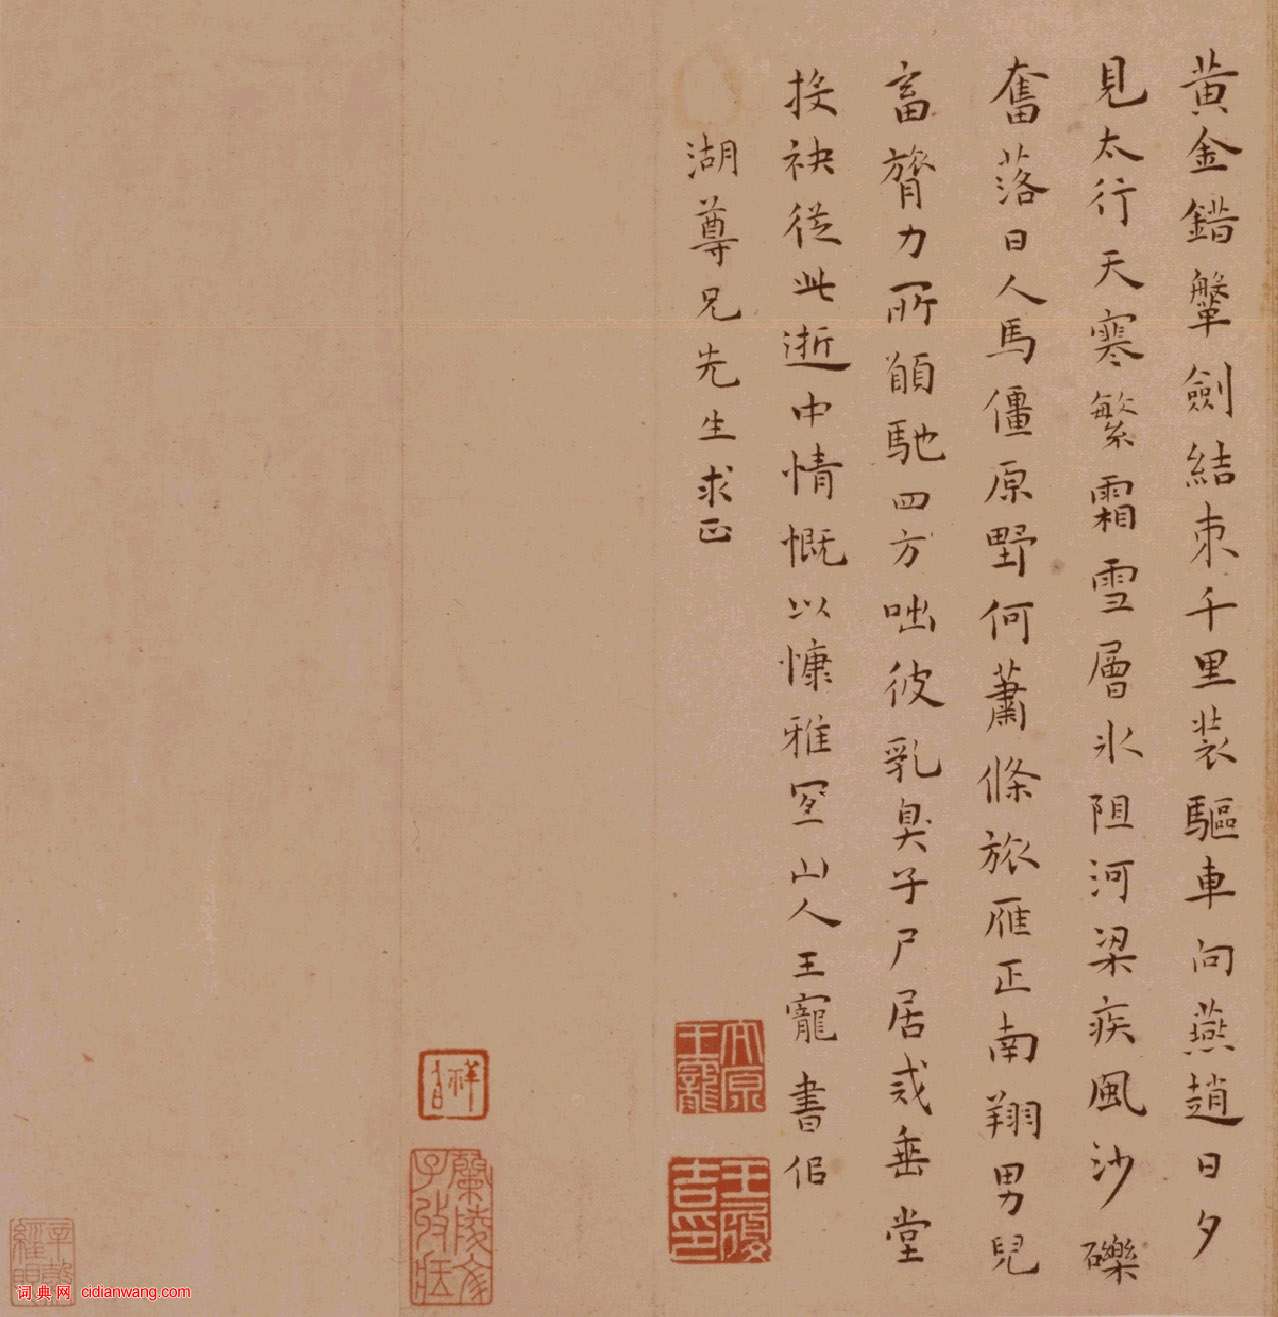 黄金錯鞶劍結束千里装驅車向燕趙日夕
見太行天寒繁霜雪層氷阻河梁疾風沙礫
奮落日人馬僵原野何蕭條旅雁正南翔男兒
富膂力所願馳四方咄彼乳臭子尸居戒垂堂
投袂從此逝中情慨以慷雅宜山人王寵書侣
湖尊兄先生求正
太原王寵
王履吉印
蘭陵家子收藏
词典网 cidianwang.com